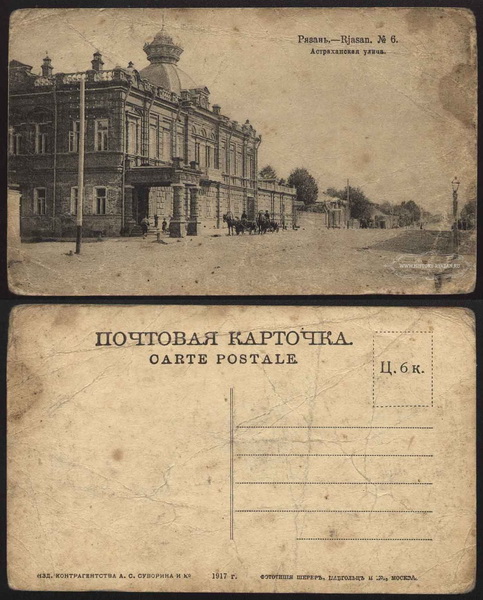 Рязань.—Rjasan. № 6.
Астраханская улица.
ПОЧТОВАЯ КАРТОЧКА.
CARTE POSTALE.
Ц. 6 к.
ИЗД. КОНТРАГЕНТСТВА А. С. СУВОРИНА И Ко
1917 г.
ФОТОТИПІЯ ШЕРЕРЪ, НАБГОЛЬЦЪ И Ко, МОСКВА.